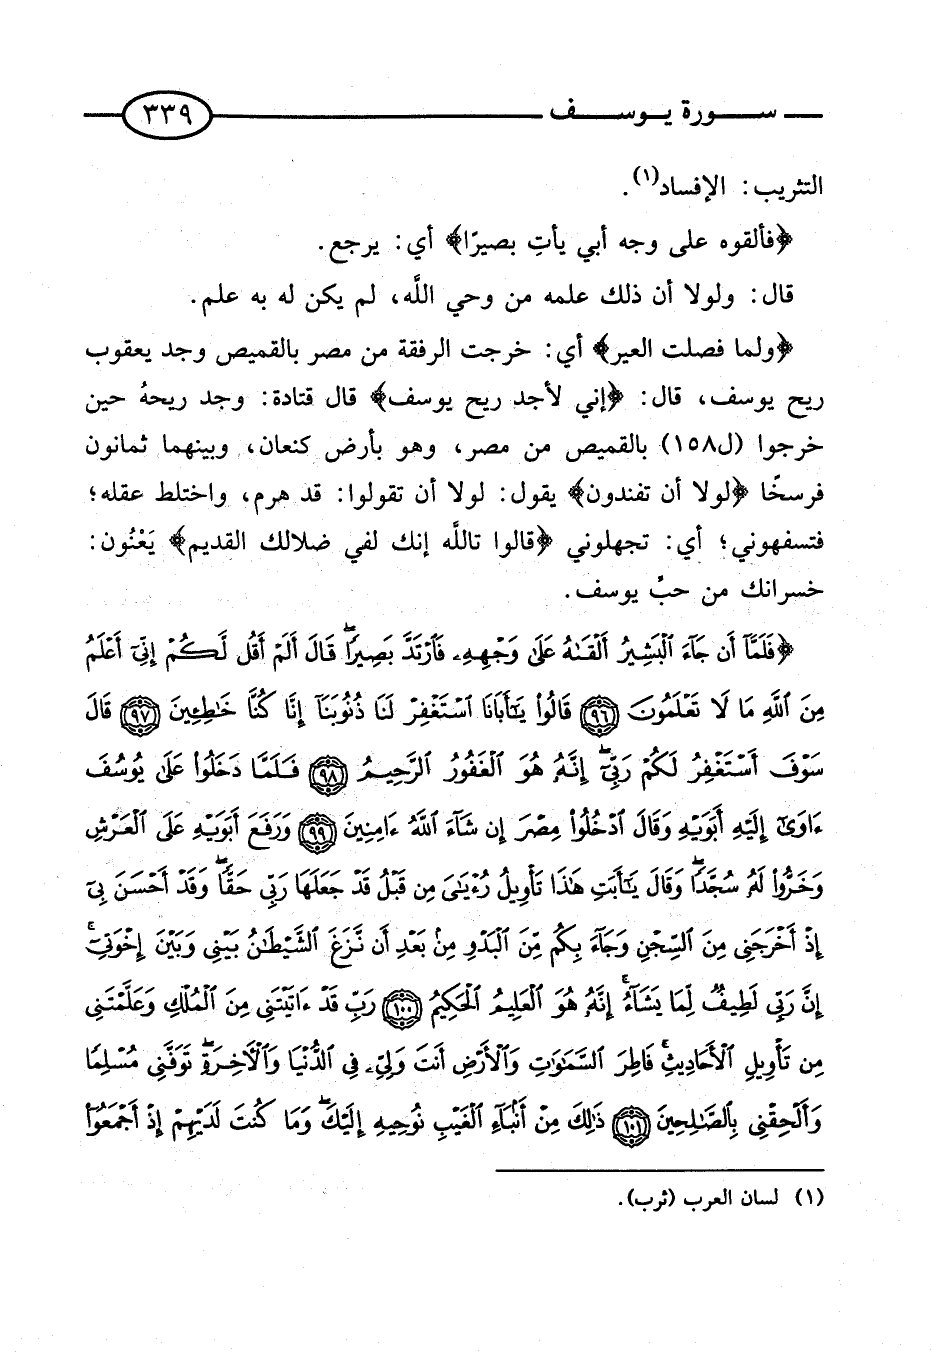 سورة يوسف ٣٣٩
التثريب: الإفساد(١).
﴿فألقوه على وجه أبي يأتِ بصيرًا﴾ أي: يرجع.
قال: ولولا أن ذلك علمه من وحي اللَّه، لم يكن له به علم.
﴿ولما فصلت العير﴾ أي: خرجت الرفقة من مصر بالقميص وجد يعقوب
ريح يوسف، قال: ﴿إني لأجد ريح يوسف﴾ قال قتادة: وجد ريحهُ حين
خرجوا (ل١٥٨) بالقميص من مصر، وهو بأرض كنعان، وبينهما ثمانون
فرسخًا ﴿لولا أن تفندون﴾ يقول: لولا أن تقولوا: قد هرم، واختلط عقله؛
فتسفهوني؛ أي: تجهلوني ﴿قالوا تاللَّه إنك لفي ضلالك القديم﴾ يَعْنُون:
خسرانك من حبِّ يوسف.
﴿فَلَمَّآ أَن جَآءَ ٱلْبَشِيرُ أَلْقَىٰهُ عَلَىٰ وَجْهِهِۦ فَٱرْتَدَّ بَصِيرًاۖ قَالَ أَلَمْ أَقُل لَّكُمْ إِنِّىٓ أَعْلَمُ
مِنَ ٱللَّهِ مَا لَا تَعْلَمُونَ ﴿٩٦﴾ قَالُوا۟ يَٰٓأَبَانَا ٱسْتَغْفِرْ لَنَا ذُنُوبَنَآ إِنَّا كُنَّا خَٰطِـِٔينَ ﴿٩٧﴾ قَالَ
سَوْفَ أَسْتَغْفِرُ لَكُمْ رَبِّىٓۖ إِنَّهُۥ هُوَ ٱلْغَفُورُ ٱلرَّحِيمُ ﴿٩٨﴾ فَلَمَّا دَخَلُوا۟ عَلَىٰ يُوسُفَ
ءَاوَىٰٓ إِلَيْهِ أَبَوَيْهِ وَقَالَ ٱدْخُلُوا۟ مِصْرَ إِن شَآءَ ٱللَّهُ ءَامِنِينَ ﴿٩٩﴾ وَرَفَعَ أَبَوَيْهِ عَلَى ٱلْعَرْشِ
وَخَرُّوا۟ لَهُۥ سُجَّدًاۖ وَقَالَ يَٰٓأَبَتِ هَٰذَا تَأْوِيلُ رُءْيَٰىَ مِن قَبْلُ قَدْ جَعَلَهَا رَبِّى حَقًّاۖ وَقَدْ أَحْسَنَ بِىٓ
إِذْ أَخْرَجَنِى مِنَ ٱلسِّجْنِ وَجَآءَ بِكُم مِّنَ ٱلْبَدْوِ مِنۢ بَعْدِ أَن نَّزَغَ ٱلشَّيْطَٰنُ بَيْنِى وَبَيْنَ إِخْوَتِىٓۚ
إِنَّ رَبِّى لَطِيفٌ لِّمَا يَشَآءُۚ إِنَّهُۥ هُوَ ٱلْعَلِيمُ ٱلْحَكِيمُ ﴿١٠٠﴾ رَبِّ قَدْ ءَاتَيْتَنِى مِنَ ٱلْمُلْكِ وَعَلَّمْتَنِى
مِن تَأْوِيلِ ٱلْأَحَادِيثِۚ فَاطِرَ ٱلسَّمَٰوَٰتِ وَٱلْأَرْضِ أَنتَ وَلِىِّۦ فِى ٱلدُّنْيَا وَٱلْءَاخِرَةِۖ تَوَفَّنِى مُسْلِمًا
وَأَلْحِقْنِى بِٱلصَّٰلِحِينَ ﴿١٠١﴾ ذَٰلِكَ مِنْ أَنۢبَآءِ ٱلْغَيْبِ نُوحِيهِ إِلَيْكَۖ وَمَا كُنتَ لَدَيْهِمْ إِذْ أَجْمَعُوٓا۟
(١) لسان العرب (ثرب).